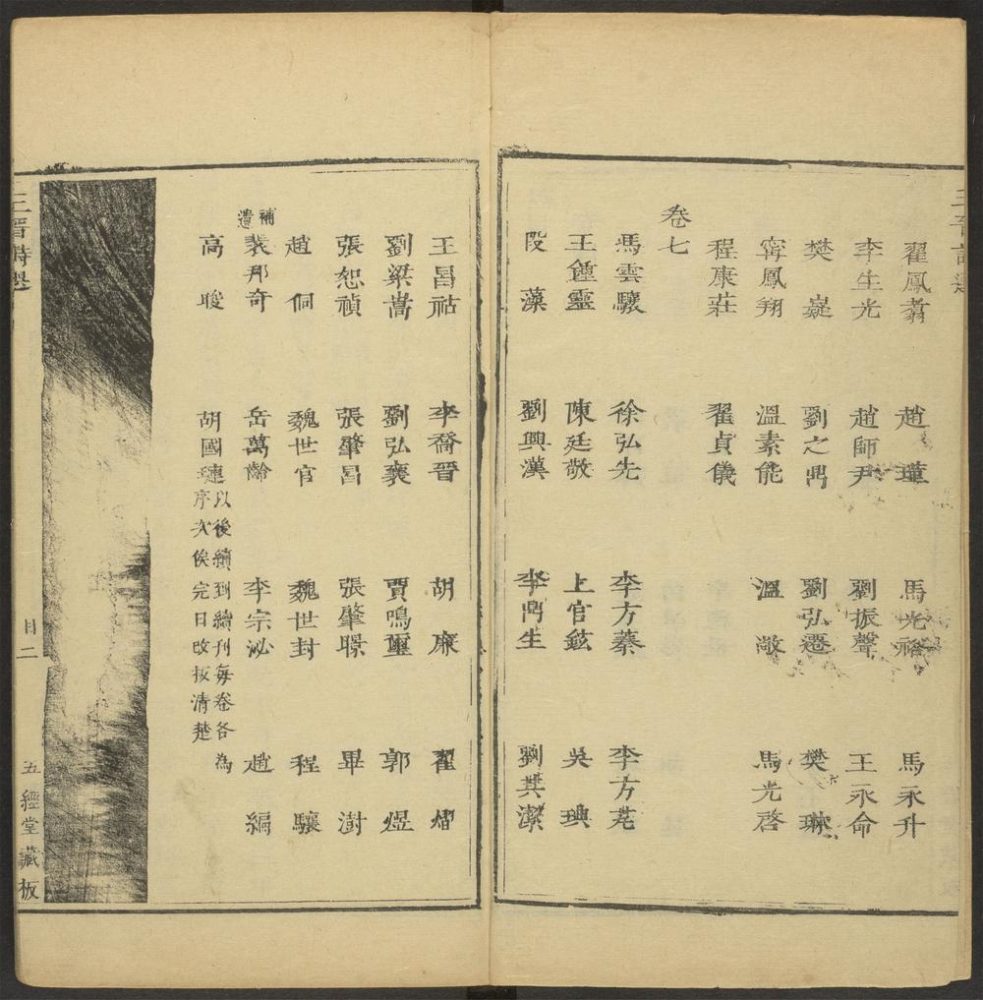 翟鳳翥 趙瑾 馬光裕 馬永升
李生光 趙師尹 劉振聲 王永命
樊嶷 劉之鼎 劉弘遷 樊琳
甯鳳翔 溫素能 溫敞 馬光啓
程康莊 翟貞儀
卷七
馮雲驤 徐弘先 李方蓁 李方芃
王鍾靈 陳廷敬 上官鉉 吳琠
段藻 劉興漢 李鼎生 劉其潔
王昌祜 李喬晉 胡庲 翟熠
劉梁嵩 劉弘襄 賈鳴璽 郭煜
張恕禎 張肇昌 張肇暻 畢澍
趙侗 魏世官 魏世封 程驤
補遺 裴邦奇 岳萬齡 李宗泌 趙編
高晙 胡國璉 以後續到續刊每卷各為
序次俟完日改板清楚
三晉詩選
目二
五經堂藏板